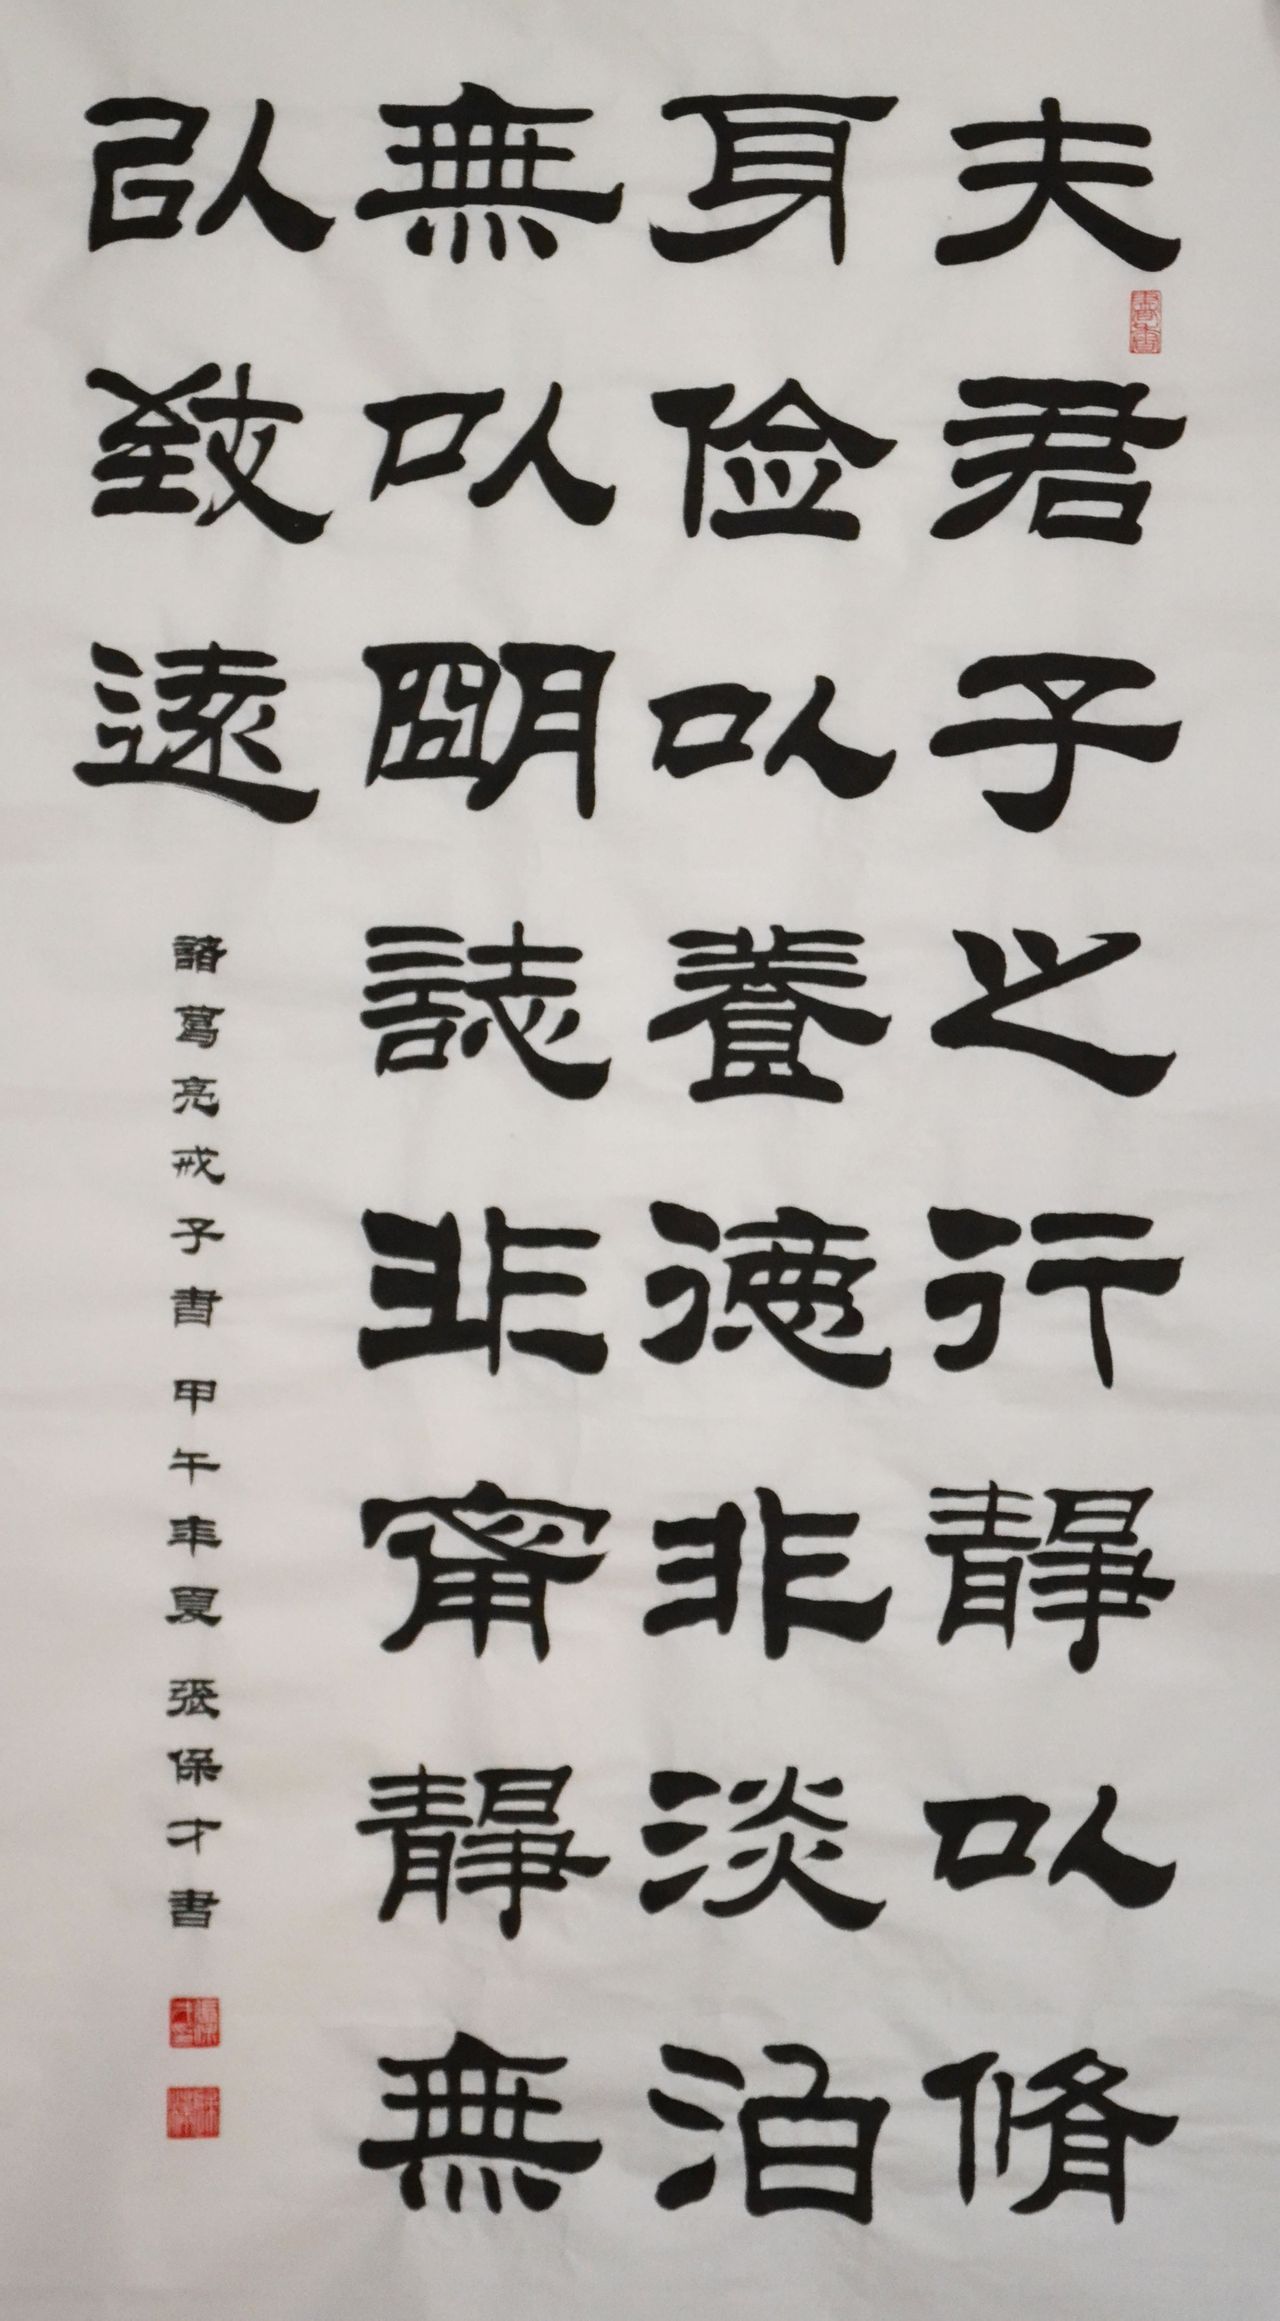 夫君子之行靜以脩
身俭以養德非淡泊
無以朙誌非甯靜無
以致遠
諸葛亮戒子書 甲午年夏 張保才書